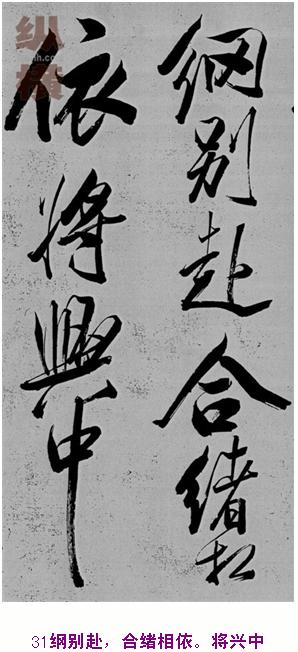 纲别赴合绪相
依将興中
纵横
31纲别赴，合绪相依。将兴中